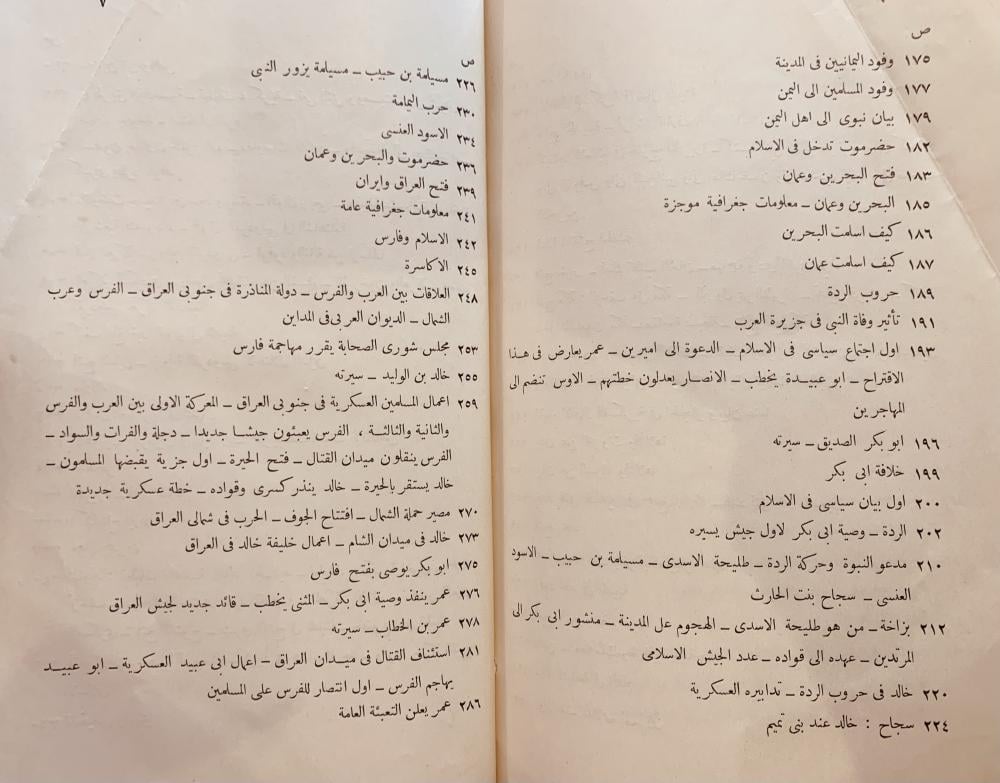 ص
١٧٥ وفود اليمانيين فى المدينة
١٧٧ وفود المسلمين الى اليمن
١٧٩ بيان نبوى الى اهل اليمن
١٨٢ حضرموت تدخل فى الاسلام
١٨٣ فتح البحرين وعمان
١٨٥ البحرين وعمان ــ معلومات جغرافية موجزة
١٨٦ كيف اسلمت البحرين
١٨٧ كيف اسلمت عمان
١٨٩ حروب الردة
١٩١ تأثير وفاة النبى فى جزيرة العرب
١٩٣ اول اجتماع سياسى فى الاسلام ــ الدعوة الى اميرين ــ عمر يعارض فى هذا
الاقتراح ــ ابو عبيدة يخطب ــ الانصار يعدلون خطتهم ــ الاوس تنضم الى
المهاجرين
١٩٦ ابو بكر الصديق ــ سيرته
١٩٩ خلافة ابى بكر
٢٠٠ اول بيان سياسى فى الاسلام
٢٠٢ الردة ــ وصية ابى بكر لاول جيش يسيره
٢١٠ مدعو النبوة وحركة الردة ــ طليحة الاسدى ــ مسيلمة بن حبيب ــ الاسود
العنسى ــ سجاح بنت الحارث
٢١٢ بزاخة ــ من هو طليحة الاسدى ــ الهجوم عل المدينة ــ منشور ابى بكر الى
المرتدين ــ عهده الى قواده ــ عدد الجيش الاسلامى
٢٢٠ خالد فى حروب الردة ــ تدابيره العسكرية
٢٢٤ سجاح : خالد عند بنى تميم
٧
ص
٢٢٦ مسيلمة بن حبيب ــ مسيلمة يزور النبى
٢٣٠ حرب اليمامة
٢٣٤ الاسود العنسى
٢٣٦ حضرموت والبحرين وعمان
٢٣٩ فتح العراق وايران
٢٤١ معلومات جغرافية عامة
٢٤٢ الاسلام وفارس
٢٤٥ الاكاسرة
٢٤٨ العلاقات بين العرب والفرس ــ دولة المناذرة فى جنوبى العراق ــ الفرس وعرب
الشمال ــ الديوان العربى فى المداين
٢٥٣ مجلس شورى الصحابة يقرر مهاجمة فارس
٢٥٥ خالد بن الوليد ــ سيرته
٢٥٩ اعمال المسلمين العسكرية فى جنوبى العراق ــ المعركة الاولى بين العرب والفرس
والثانية والثالثة ، الفرس يعبئون جيشا جديدا ــ دجلة والفرات والسواد ــ
الفرس ينقلون ميدان القتال ــ فتح الحيرة ــ اول جزية يقبضها المسلمون ــ
خالد يستقر بالحيرة ــ خالد ينذر كسرى وقواده ــ خطة عسكرية جديدة
٢٧٠ مصير حملة الشمال ــ افتتاح الجوف ــ الحرب فى شمالى العراق
٢٧٣ خالد فى ميدان الشام ــ اعمال خليفة خالد فى العراق
٢٧٥ ابو بكر يوصى بفتح فارس
٢٧٦ عمر ينفذ وصية ابى بكر ــ المثنى يخطب ــ قائد جديد لجيش العراق
٢٧٨ عمر بن الخطاب ــ سيرته
٢٨١ استئناف القتال فى ميدان العراق ــ اعمال ابى عبيد العسكرية ــ ابو عبيد
يهاجم الفرس ــ اول انتصار للفرس على المسلمين
٢٨٦ عمر يعلن التعبئة العامة